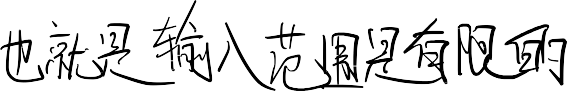 也就是输入范围是有限的